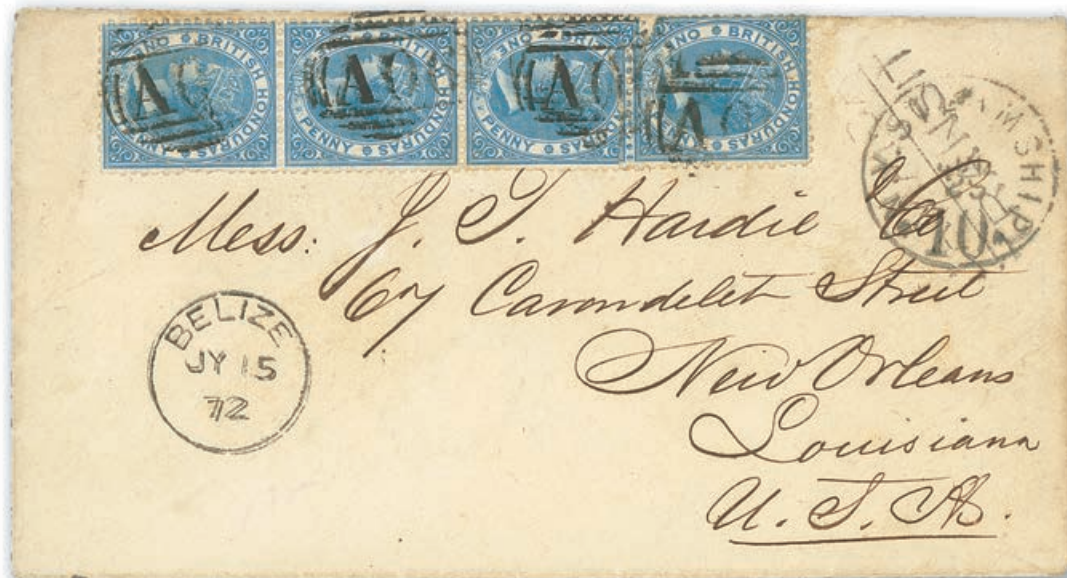 BRITISH HONDURAS ONE PENNY
A06
BRITISH HONDURAS ONE PENNY
A0
BRITISH HONDURAS ONE PENNY
A0
BRITISH HONDURAS ONE PENNY
A
SHIP
10
Mess: J. T. Hardie & Co
67 Carondelet Street
New Orleans
Louisiana
U. S. A.
BELIZE
JY 15
72